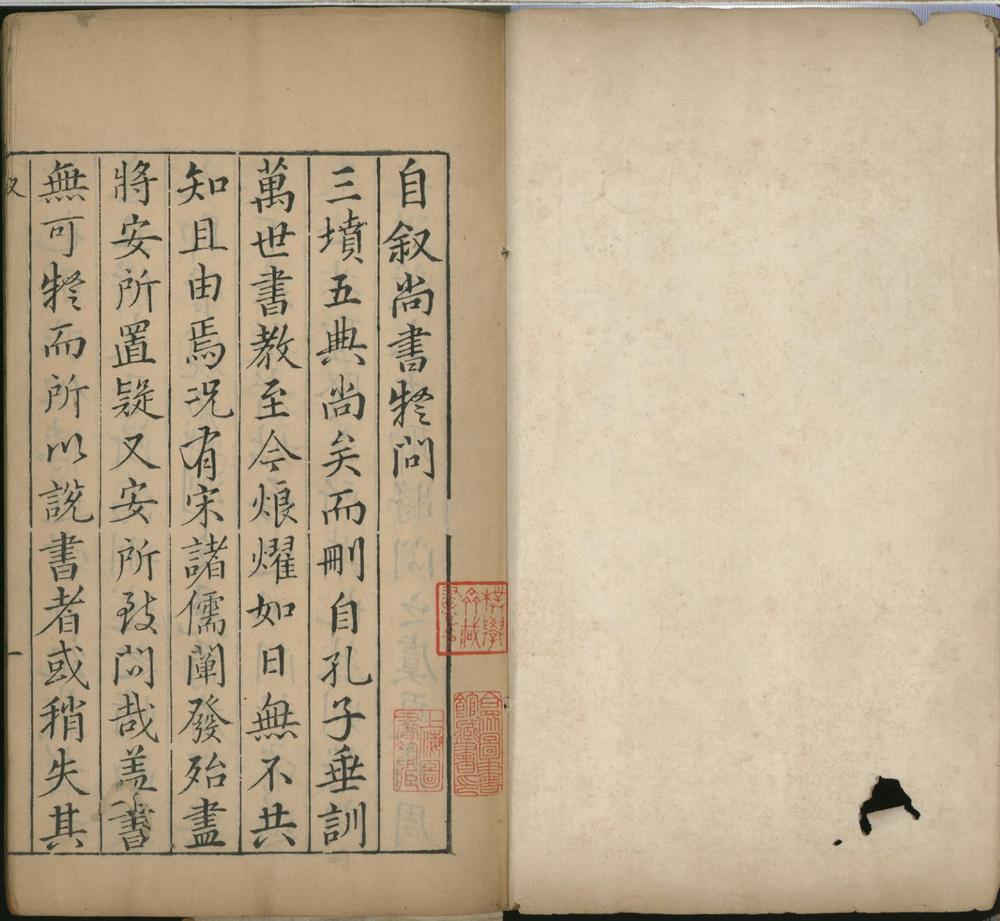 自叙尚書㸻問
三墳五典尚矣而刪自孔子垂訓
萬世書教至今烺燿如日無不共
知且由焉况有宋諸儒闡發殆盡
將安所置疑又安所致問哉盖書
無可㸻而所以說書者或稍失其
叙
一
上海圖書館藏